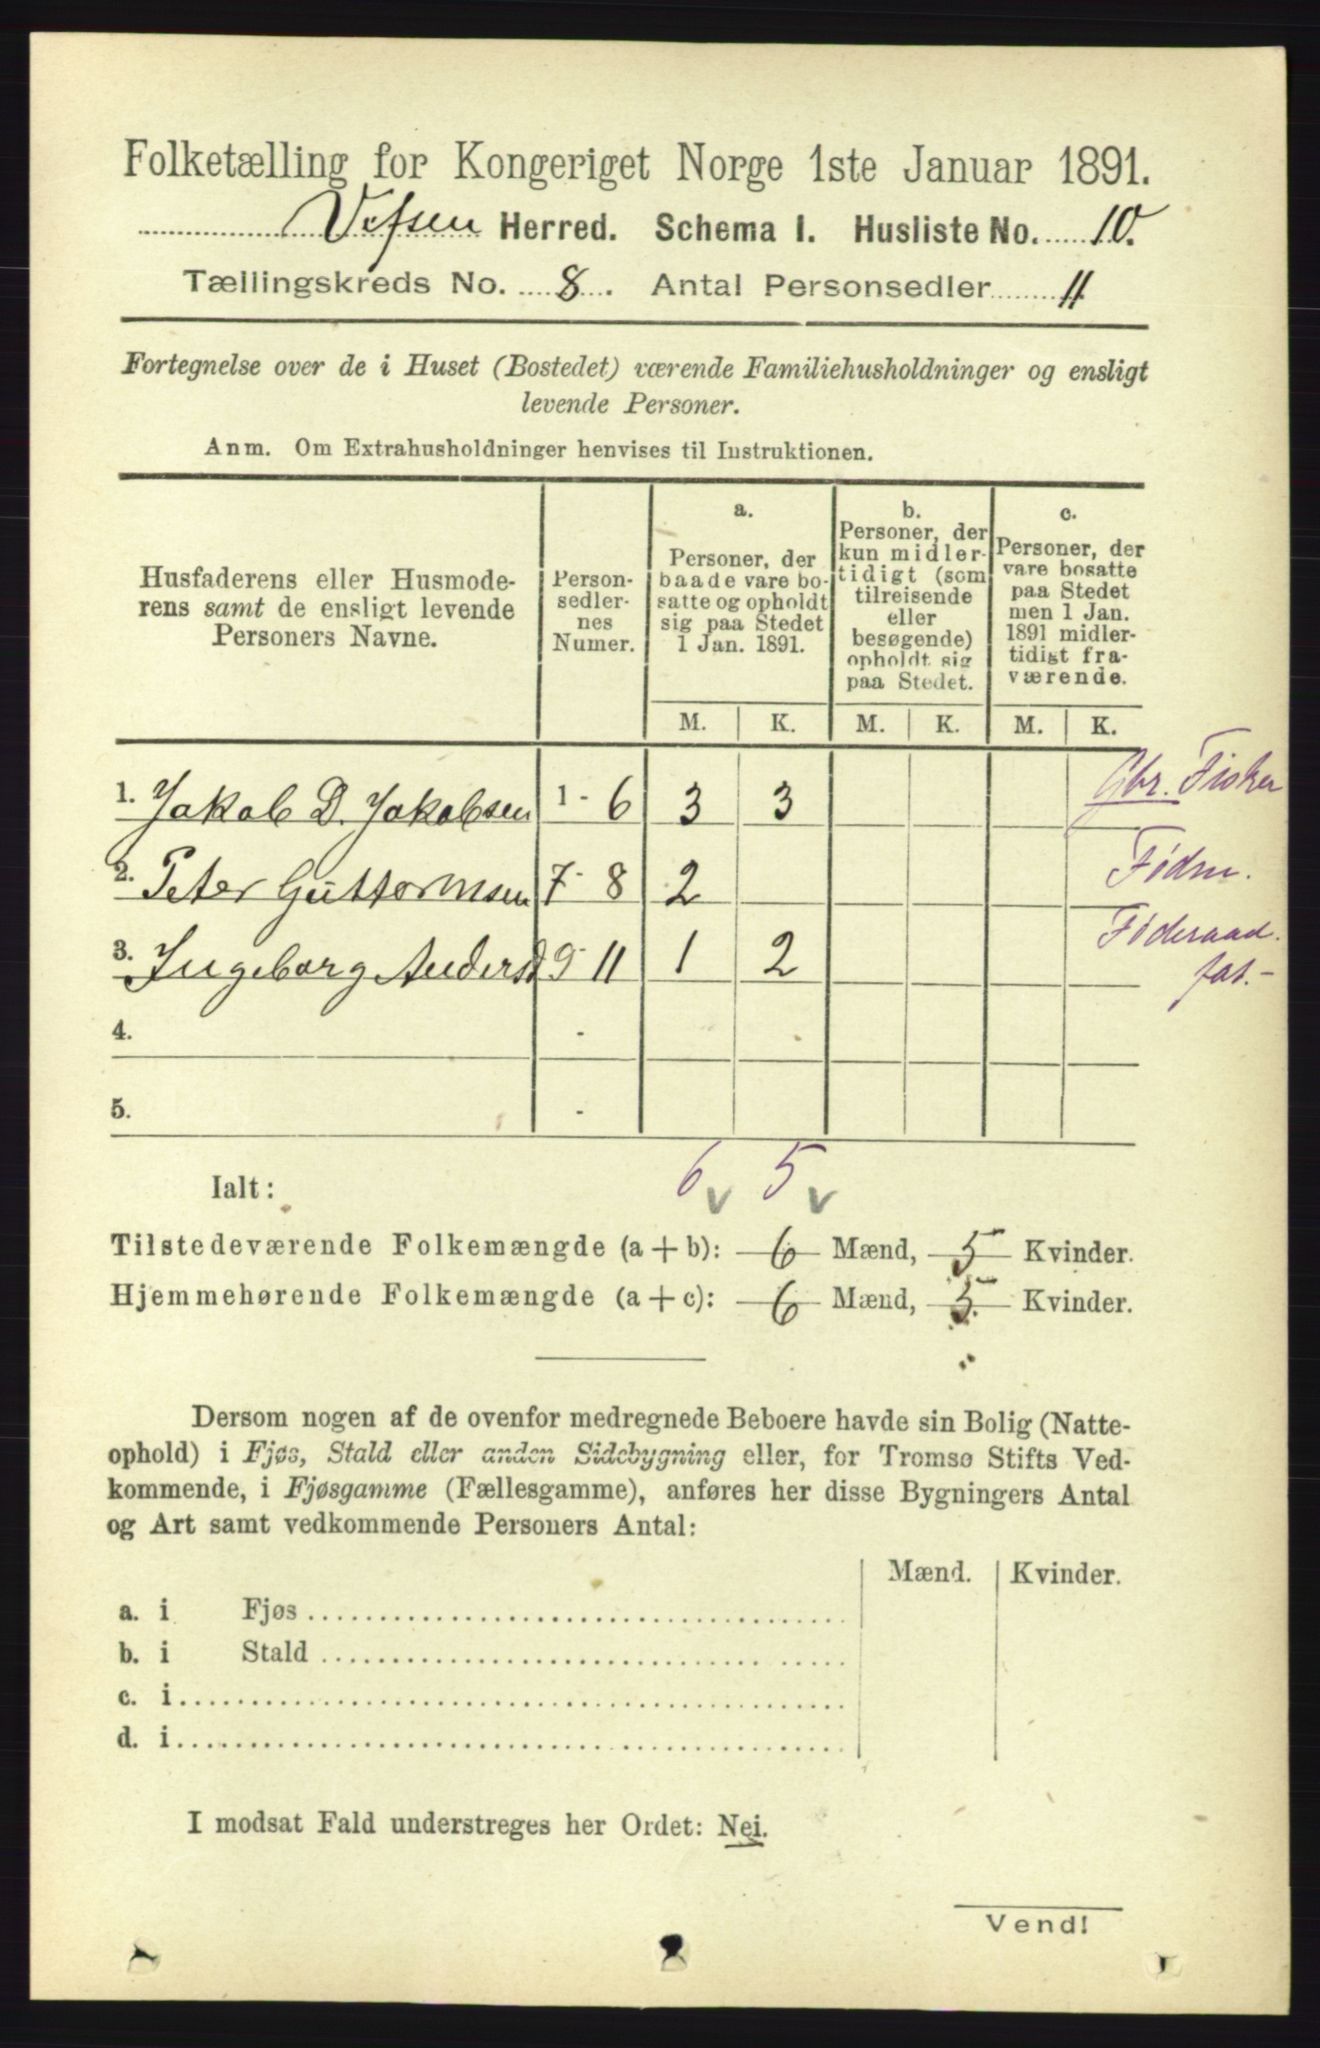 Folketælling for Kongeriget Norge 1ste Januar 1891.
Vefsen Herred. Schema I. Husliste No. 10.
Tællingskreds No. 8. Antal Personsedler 11
Fortegnelse over de i Huset (Bostedet) værende Familiehusholdninger og ensligt
levende Personer.
Anm. Om Extrahusholdninger henvises til Instruktionen.
Husfaderens eller Husmode-
rens samt de ensligt levende
Personers Navne.
Person-
sedler-
nes
Numer.
a.
Personer, der
baade vare bo-
satte og opholdt
sig paa Stedet
1 Jan. 1891.
b.
Personer, der
kun midler-
tidigt (som
tilreisende
eller
besøgende)
opholdt sig
paa Stedet.
c.
Personer, der
vare bosatte
paa Stedet
men 1 Jan.
1891 midler-
tidigt fra-
værende.
M. K. M. K. M. K.
1. Jakob D. Jakobsen 1 - 6 3 3 Gbr. Fisker
2. Peter Guttormsen 7 - 8 2 Fødsn.
3. Ingeborg Andersd 9 - 11 1 2 Føderaad.
fat.-
4. -
5. -
Ialt: 6 v 5 v
Tilstedeværende Folkemængde (a + b): 6 Mænd, 5 Kvinder.
Hjemmehørende Folkemængde (a + c): 6 Mænd, 5. Kvinder.
Dersom nogen af de ovenfor medregnede Beboere havde sin Bolig (Natte-
ophold) i Fjøs, Stald eller anden Sidebygning eller, for Tromsø Stifts Ved-
kommende, i Fjøsgamme (Fællesgamme), anføres her disse Bygningers Antal
og Art samt vedkommende Personers Antal:
Mænd. Kvinder.
a. i Fjøs
b. i Stald
c. i
d. i
I modsat Fald understreges her Ordet: Nei.
Vend!